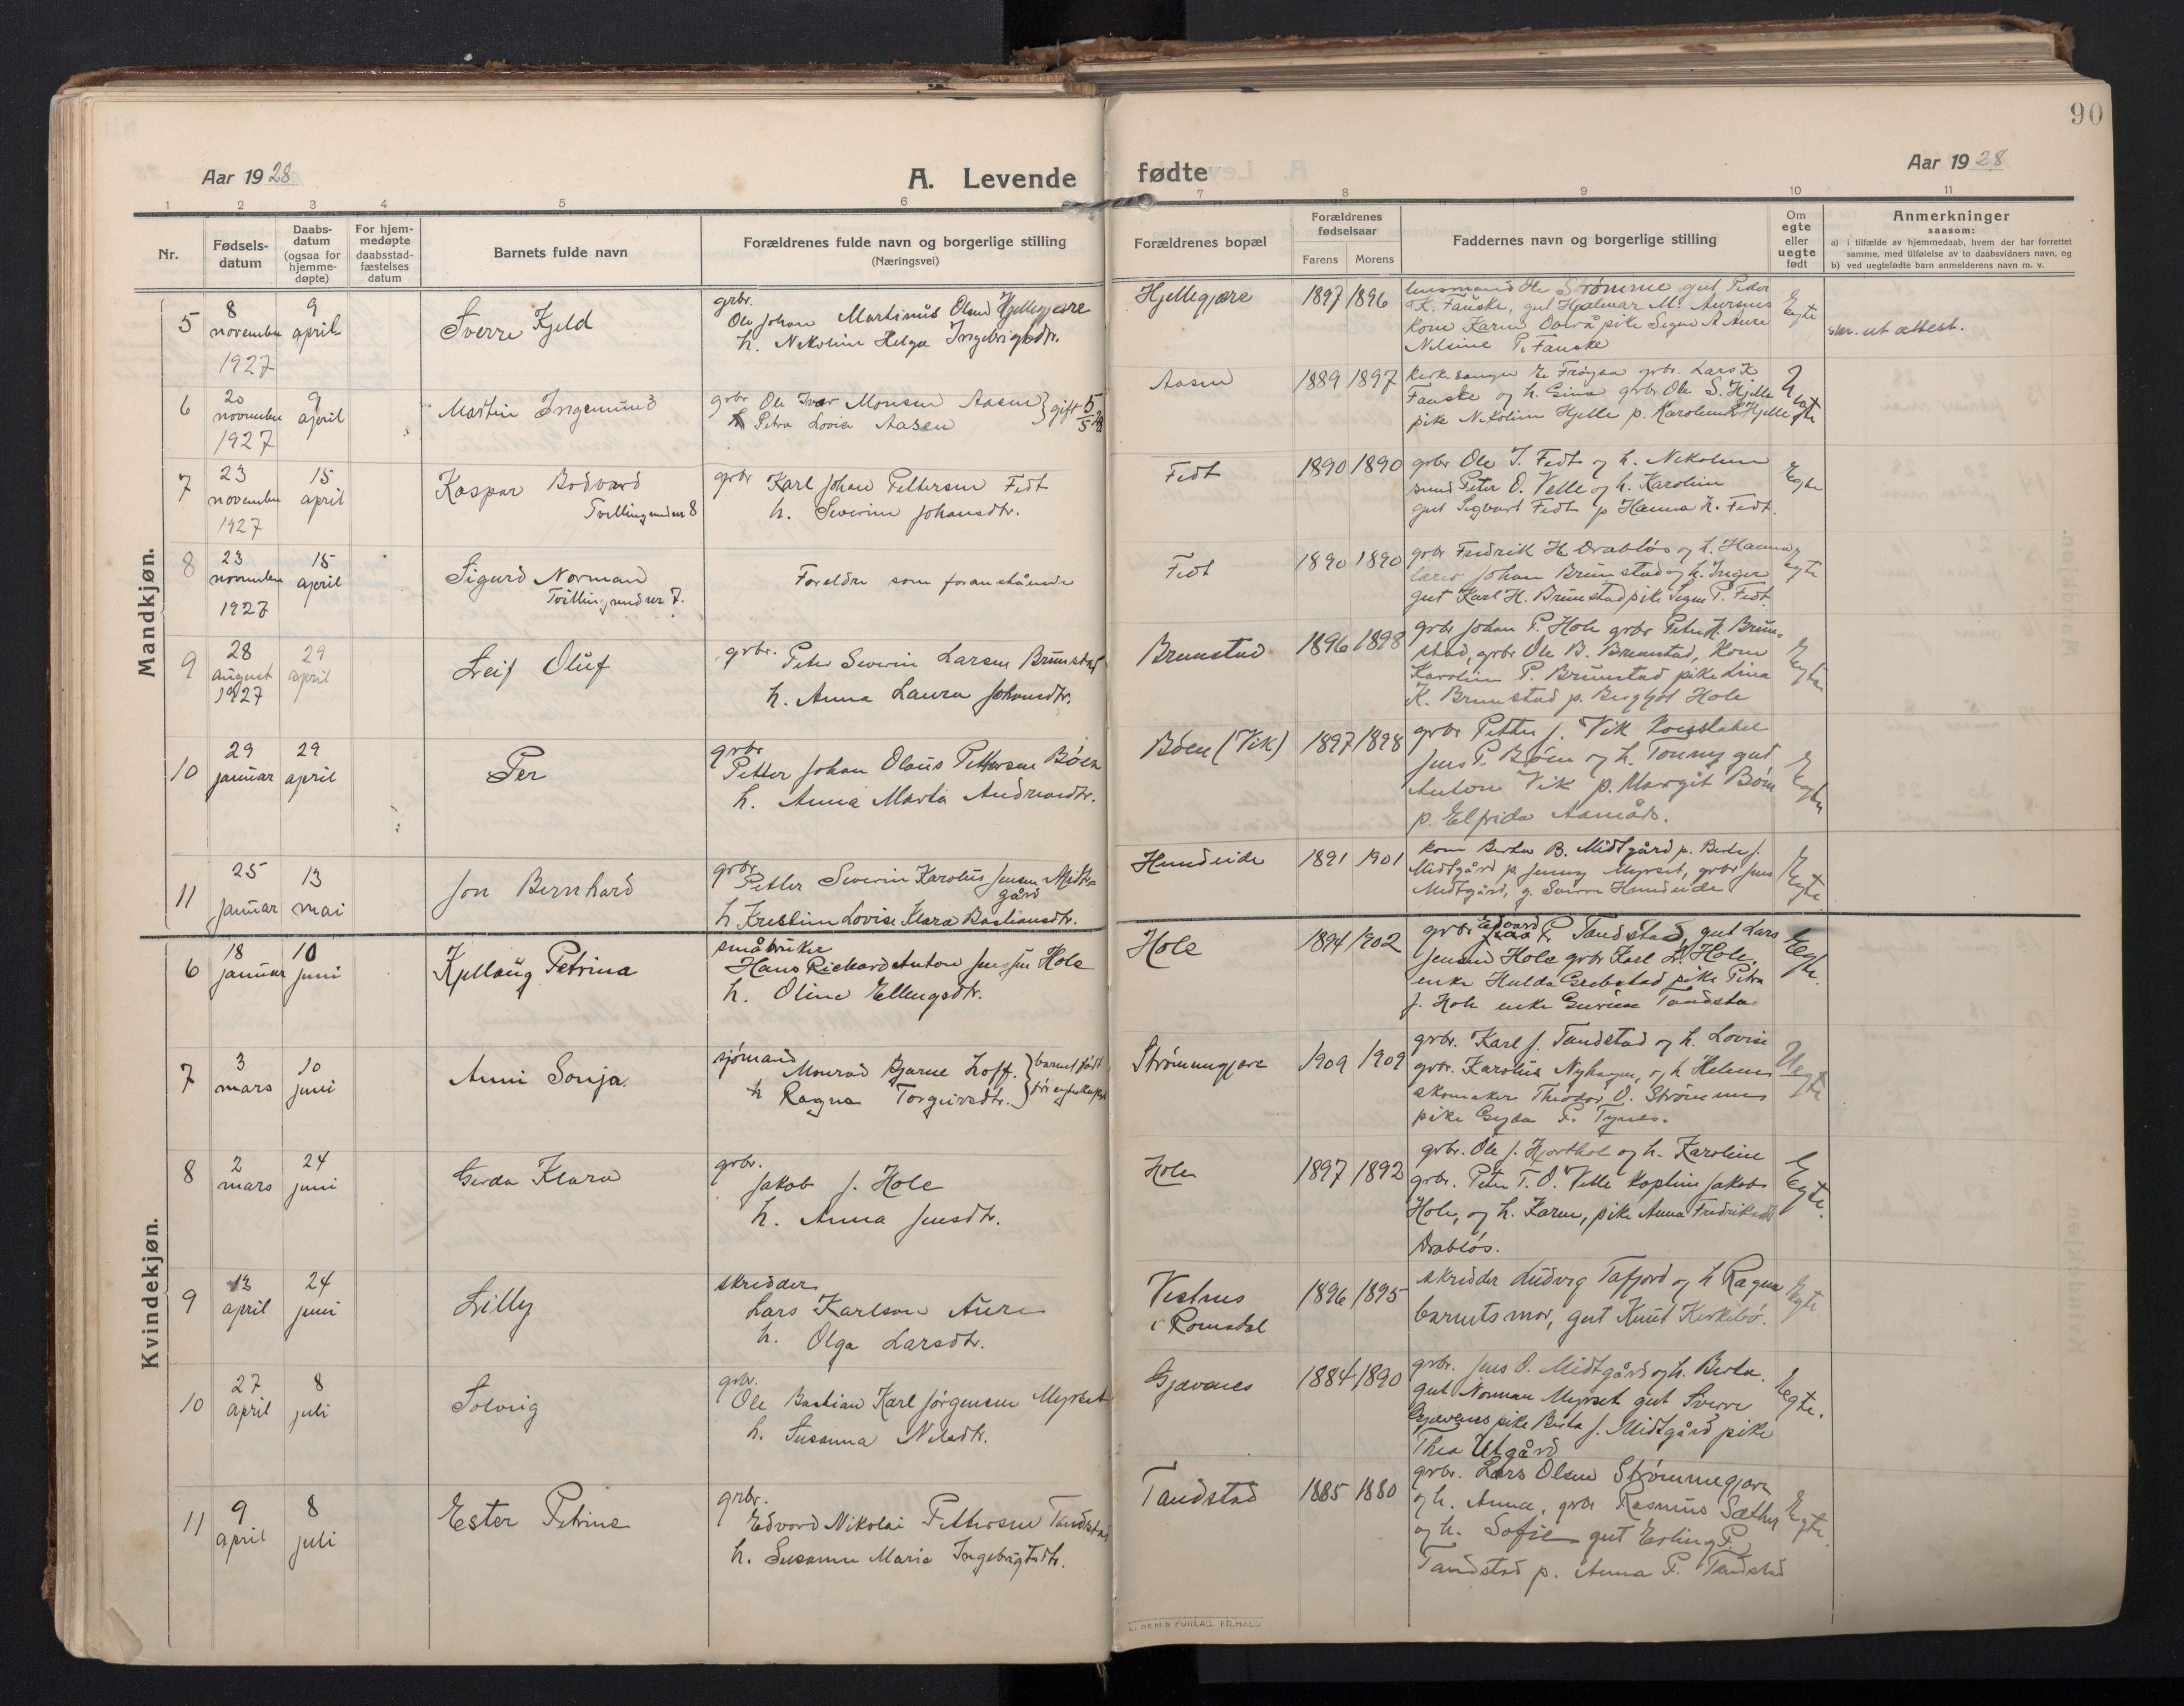 90
Aar 1928
A. Levende fødte
Aar 1928
1 2 3 4 5 6 7 8 9 10 11
Nr.
Fødsels-
datum
Daabs-
datum
(ogsaa for
hjemme-
døpte)
For hjem-
medøpte
daabsstad-
fæstelses
datum
Barnets fulde navn
Forældrenes fulde navn og borgerlige stilling
(Næringsvei)
Forældrenes bopæl
Forældrenes
fødselsaar
Farens Morens
Faddernes navn og borgerlige stilling
Om
egte
eller
uegte
født
Anmerkninger
saasom:
a) i tilfælde av hjemmedaab, hvem der har forrettet
samme, med tilføielse av to daabsvidners navn, og
b) ved uegtefødte barn anmelderens navn m. v.
Mandkjøn.
5
8
november
1927
9
april
Sverre Kjeld
grbr.
Ole Johan Martinus Olsen Hjellegjære
h. Nekoline Helga Ingebrigtsdtr.
Hjellegjære
1897 1896
lensmand Ole Strømme gut Peder
K. Fauske, gut Halvar M. Aursnes
kone Karen Overå pike Signe A Aure
Nelsine P. Fauske
Egte
ut attest.
6
20
november
1927
9
april
Martin Ingemund
grbr Ole Ivar Monsen Aasen } gift 5/5 28
Petra Lovise Aasen
Aasen
1889 1897
kirkesanger E. Frøysa grbr. Lars K
Fauske og h. Gina grbr Ole S. Hjelle
pike Nikoline Hjelle p. Karoline Hjelle
Uegte
7
23
november
1927
15
april
Kaspar Bodvard
Tvilling under 8
grbr Karl Johan Pettersen Fedt
h. Severine Johansdtr.
Fedt
1890 1890
grbr Ole J. Fedt og h. Nekoline
Peter O. Velle og h. Karoline
gut Sigvart Fedt p Hanna K. Fedt.
Egte
8
23
november
1927
15
april
Sigurd Norman
Tvilling under 7.
Foreldre som foranstående
Fedt
1890 1890
grbr Fredrik H Drabløs og h. Hanna,
lærer Johan Brunstad og h. Inger
gut Karl H. Brunstad pike Signe P. Fedt.
Egte
9
28
august
1927
29
april
Leif Oluf
grbr. Peter Severin Larsen Brunstad
h. Anna Laura Johansdtr.
Brunstad
1896 1898
grbr Johan P. Hole grbr Peter K. Brun-
stad, grbr Ole B. Brunstad, kone
Karoline P. Brunstad pike Lina
K. Brunstad p. Bergljot Hole
Egte
10
29
januar
29
april
Per
grbr
Petter Johan Olaus Pettersen Bøen
h. Anna Marta Andreasdtr.
Bøen (Vik)
1897 1898
grbr Petter J. Vik
Jens P. Bøen og h. Tonny gut
Anton Vik p. Margit Bøen
p. Elfrida Aamås.
Egte
11
25
januar
13
mai
Jon Bernhard
grbr
Petter Severin Karolus Jensen Midt-
gård
h Kristine Lovise Klara Bastiansdtr.
Hundeide
1891 1901
kone Berta B. Midtgård p. Berte J.
Midtgård p. Jenny Myrset, grbr Jens
Midtgård, g. Sverre Hundeide
Egte
Kvindekjøn.
6
18
januar
10
juni
Kjellaug Petrina
småbruker
Hans Richard Anton Jensen Hole
h. Oline Ellengsdtr.
Hole
1894 1902
grbr Edvard P. Tandstad, gut Lars
Jensen Hole grbr Karl L. Hole,
enke Hulda Grebstad pike Petra
J. Hole enke Tandstad
Egte.
7
3
mars
10
juni
Anni Sonja.
sjømand
Monrad Bjarne Hoff. } barnet født
h Ragna Torgeirsdtr. } før egteskapet
Strømmegjære
1909 1909
grbr. Karl J. Tandstad og h. Lovise
grbr. Karolus Nyhagen, og h Helene
skomaker Theodor O. Strømmen
pike Gyda P. Tynes.
Uegte
8
2
mars
24
juni
Gerda Klara
grbr.
Jakob J. Hole
h. Anna Jensdtr.
Hole
1897 1892
grbr. Ole J. Hjorthol og h. Karoline
grbr. Peter T. O. Velle Jakob
Hole, og h. Karen, pike Anna
Drabløs.
Egte.
9
12
april
24
juni
Lilly
skredder
Lars Karlson Aure
h. Olga Larsdtr.
Vestnes
i Romsdal
1896 1895
skredder Ludvig Tafjord og h Ragna
barnets mor, gut Knut Kirkebø.
Egte
10
27
april
8
juli
Solveig
grbr.
Ole Bastian Karl Jørgensen Myrset
h. Susanna Nilsdtr.
Gjævenes
1884 1890
grbr. Jens O. Midtgård og h. Berta.
gut Norman Myrset gut Sverre
Gjævenes pike Berta J. Midtgård pike
Thea Utgård
Egte.
11
9
april
8
juli
Ester Petrine
grbr.
Edvard Nikolai Pettersen Tandstad
h. Susanne Maria Ingebrigtsdtr.
Tandstad
1885 1880
grbr. Lars Olsen Strømmegjære
og h. Anna, grbr Rasmus Sæther
og h. Sofie gut Erling P.
Tandstad p. Anna P. Tandstad
Egte.